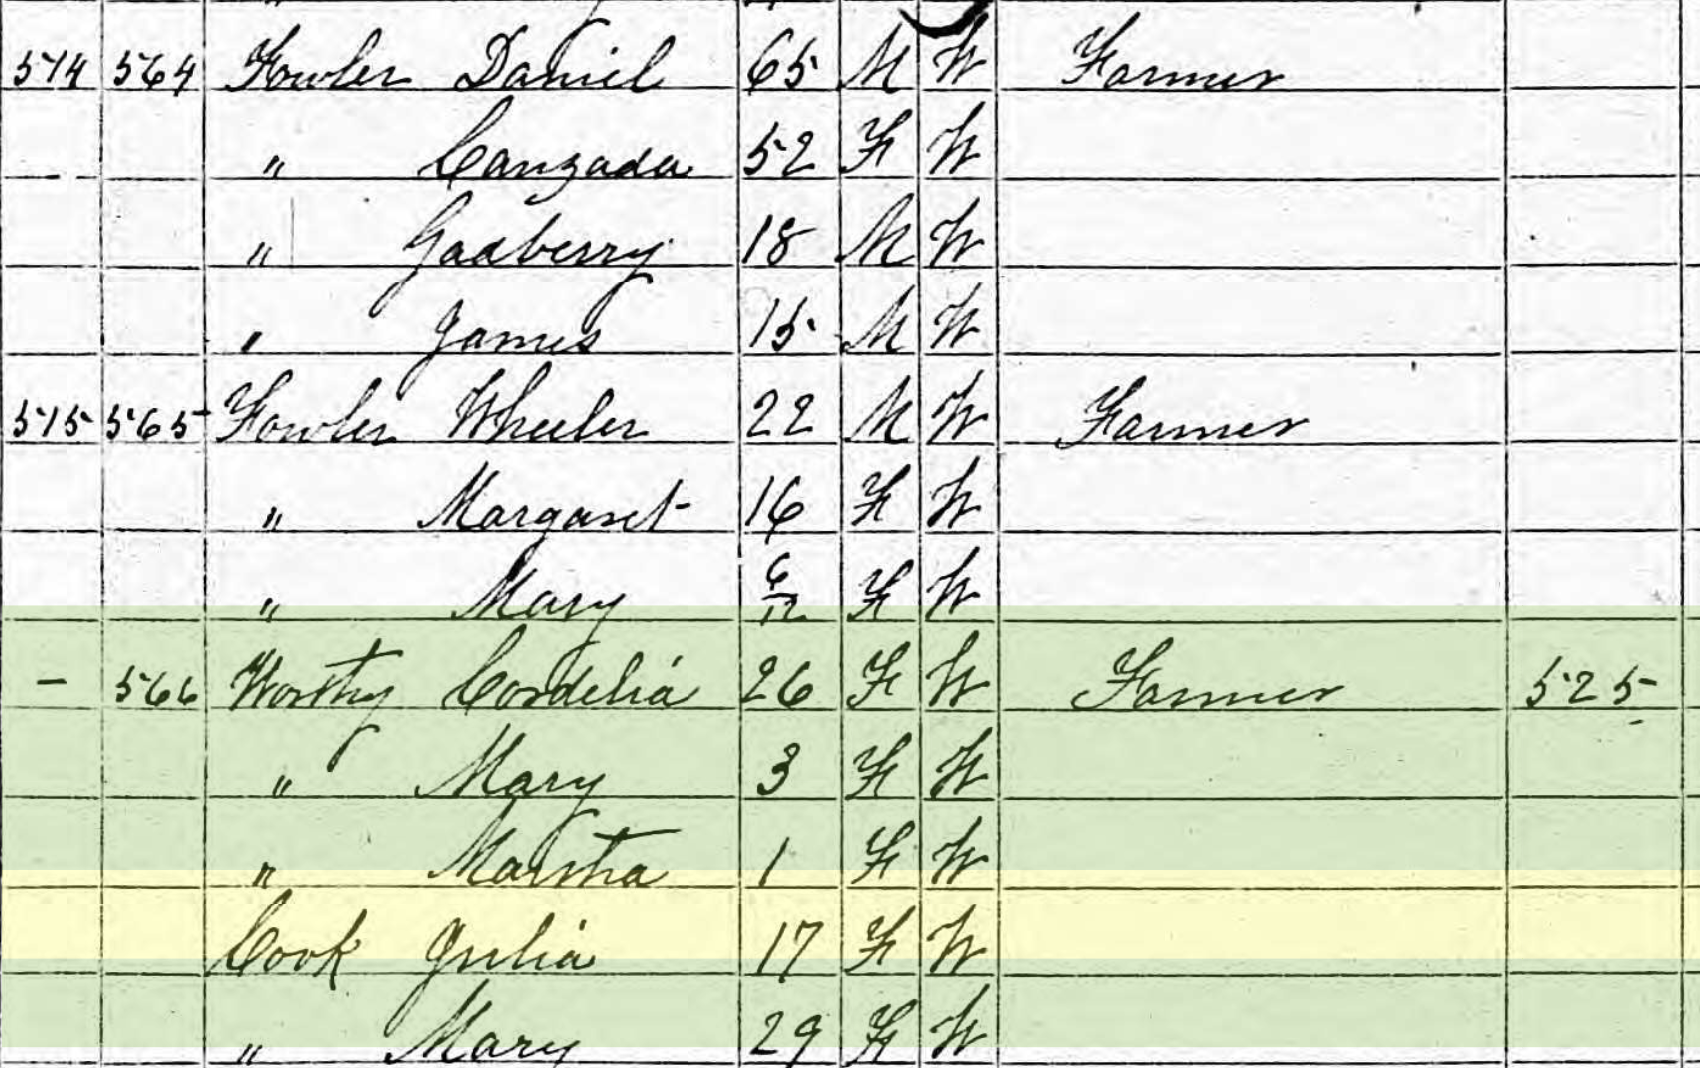 514 564 Fowler Daniel 65 M W Farmer
" Canzada 52 F W
" Gadberry 18 M W
" James 15 M W
515 565 Fowler Wheeler 22 M W Farmer
" Margaret 16 F W
" Mary 6/12 F W
– 566 Worthy Cordelia 26 F W Farmer 525
" Mary 3 F W
" Martha 1 F W
Cook Julia 17 F W
" Mary 29 F W